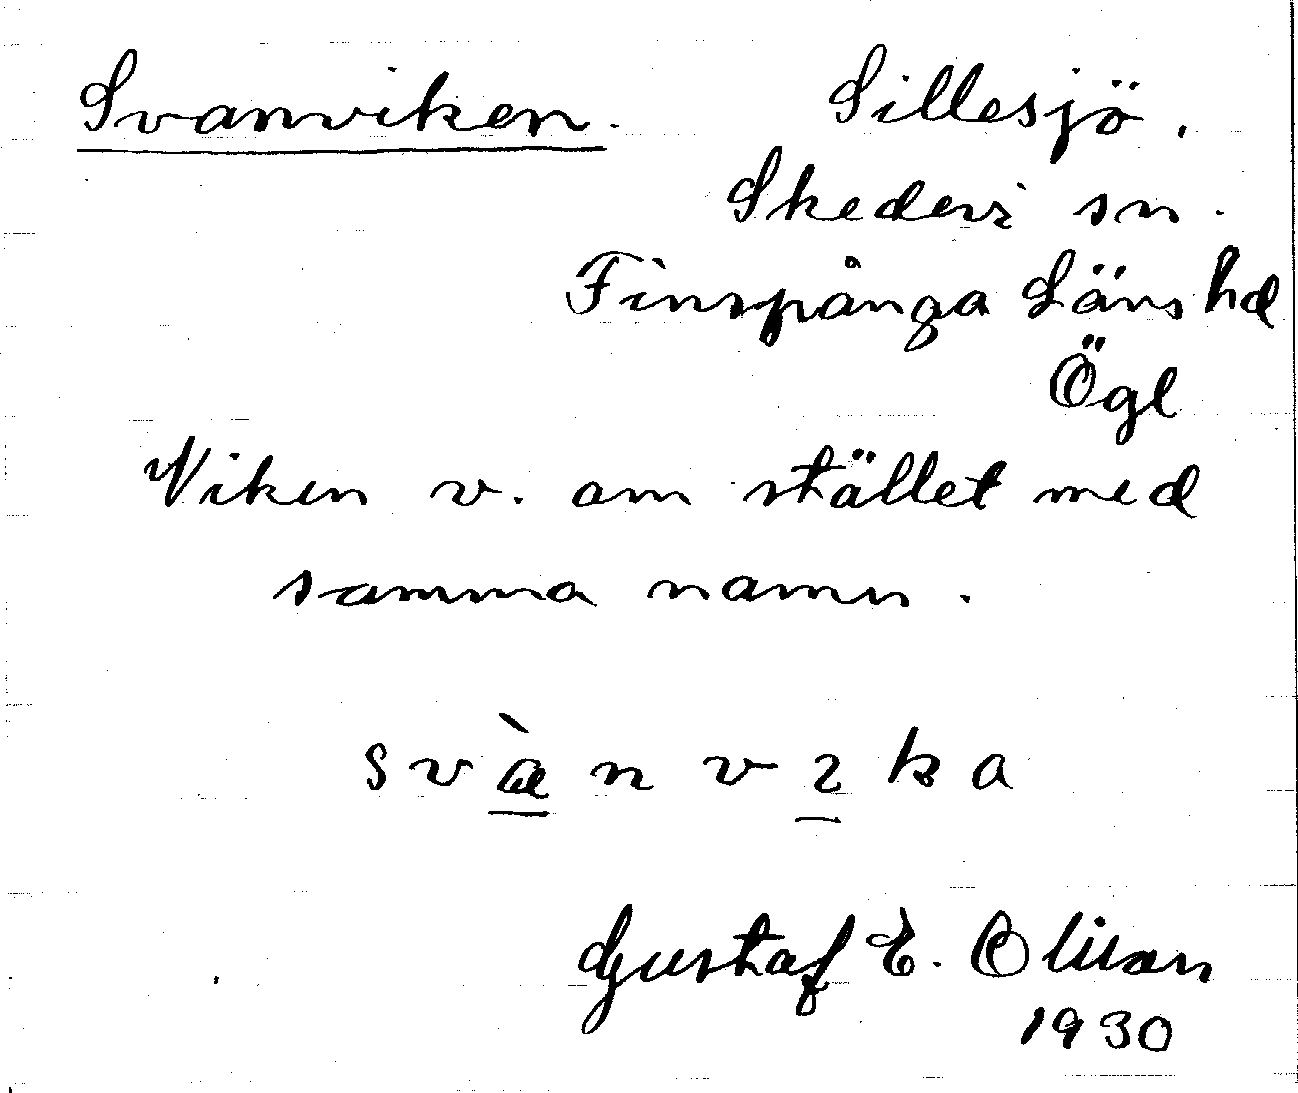 Svanviken. Sillesjö.
Skedevi sn.
Finspånga Läns hd
Ögl
Viken v. om stället med
samma namn.
svæ̀nvɩka
Gustaf E. Olson
1930